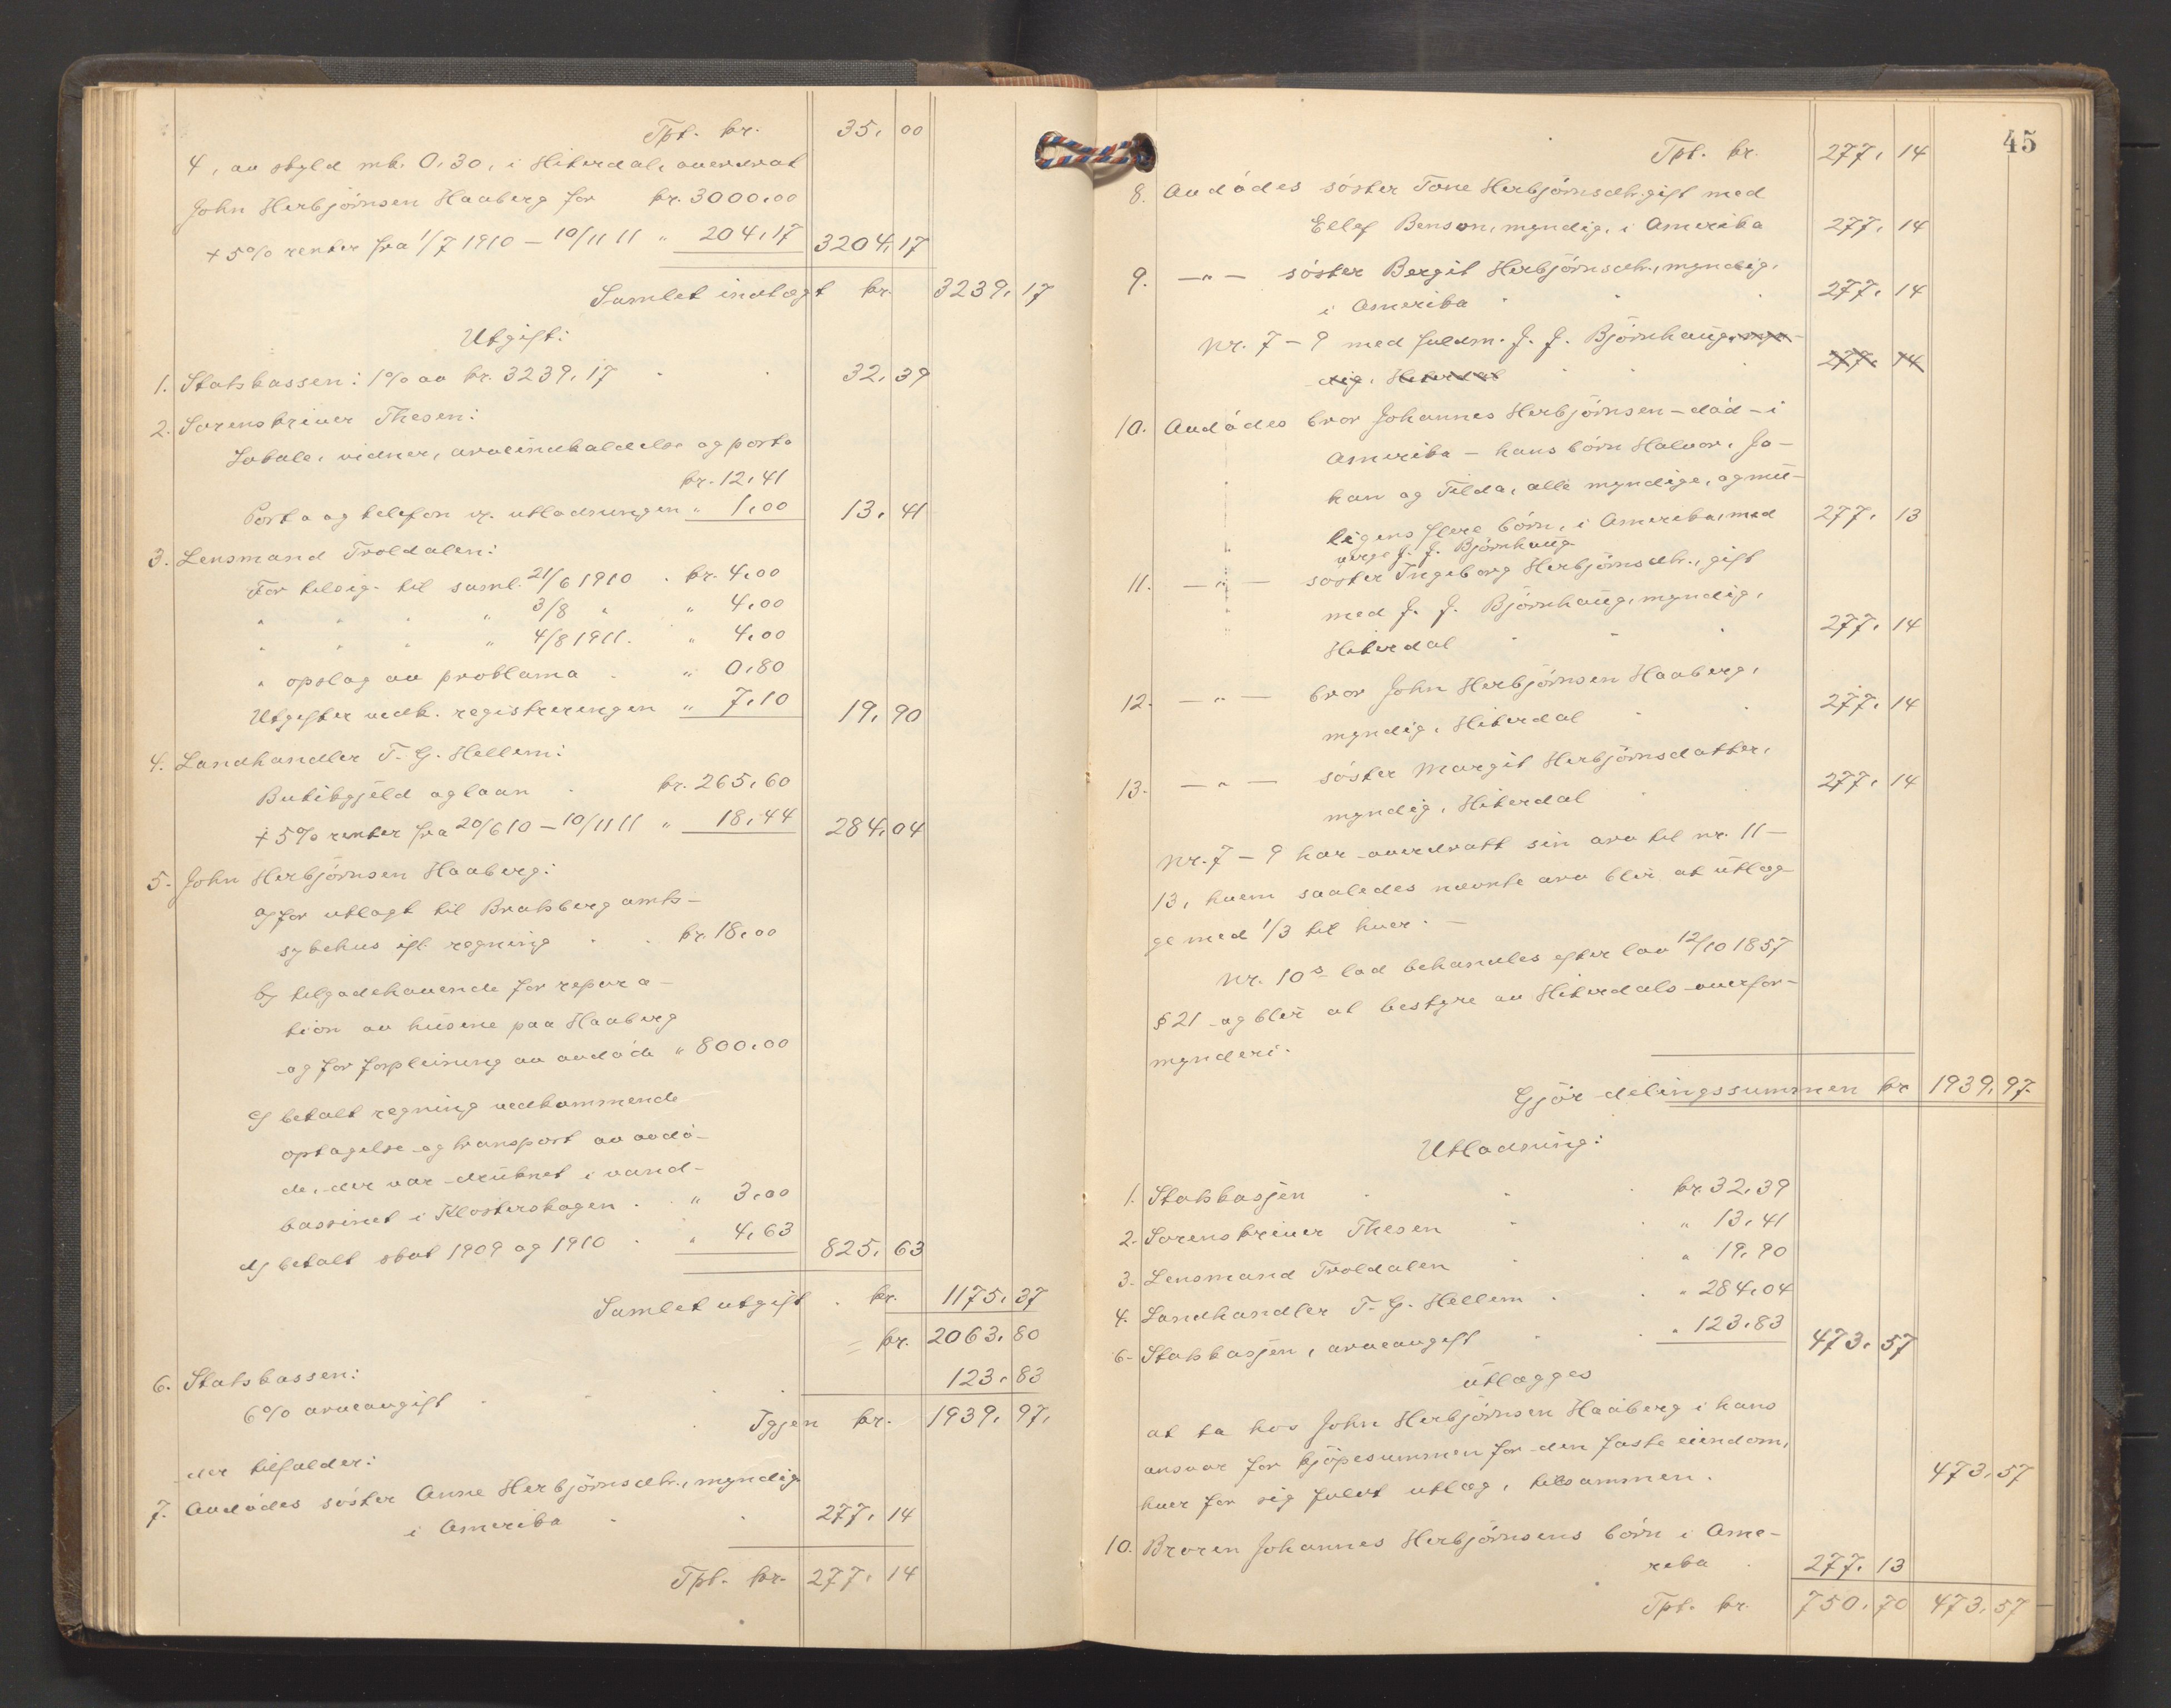 Tpt. kr. 35,00
4, av skyld mk. 0,30, i Hiterdal, overdrat
John Herbjørnsen Haaberg for kr. 3000,00
+ 5% renter fra 1/7 1910 – 10/11 11 " 204,17 3204,17
Samlet indtægt kr. 3239,17
Utgift:
1. Statskassen: 1% av kr. 3239,17 32,39
2. Sorenskriver Thesen:
Lokale, vidner, arveindkaldelse og porto
kr. 12,41
Porto og telefon v. utlodningen " 1,00 13,41
3. Lensmand Troldalen:
For tilsig. til saml. 21/6 1910 . kr. 4,00
" " " " 3/8 " " 4,00
" " " " 4/8 1911. " 4,00
" opslag av proklama . " 0,80
Utgifter vedk. registreringen " 7,10 19,90
4. Landhandler T. G. Hellem:
Butikgjeld og laan . kr. 265,60
+ 5% renter fra 20/6 10 – 10/11 11 " 18,44 284,04
5. John Herbjørnsen Haaberg:
a) for utlagt til Bratsberg amts-
sykehus ifl. regning . . kr. 18,00
b) tilgodehavende for repara-
tion av husene paa Haaberg
og for forpleining av avdøde " 800,00
c) betalt regning vedkommende
optagelse og transport av avdø-
de, der var druknet i vand-
bassinet i Klosterskogen . " 3,00
d) betalt skat 1909 og 1910 . " 4,63 825,63
Samlet utgift . kr. 1175,37
= kr. 2063,80
6. Statskassen:
6% arveavgift . . . . 123,83
Igjen kr. 1939,97,
der tilfalder:
7. Avdødes søster Anne Herbjørnsdtr., myndig
i Amerika . . 277,14
Tpt. kr. 277,14
45
Tpt. kr. 277,14
8. Avdødes søster Tone Herbjørnsdtr. gift med
Ellef Benson, myndig, i Amerika 277,14
9. – " – søster Bergit Herbjørnsdtr., myndig,
i Amerika . . . 277,14
Nr. 7 – 9 med fuldm. J. J. Bjørnhaug, myn-
dig, Hiterdal . . 277,14
10. Avdødes bror Johannes Herbjørnsen – død – i
Amerika – hans børn Halvor, Jo-
han og Tilda, alle myndige, og mu-
ligens flere børn, i Amerika, med 277,13
verge J. J. Bjørnhaug
11. – " – søster Ingeborg Herbjørnsdtr., gift
med J. J. Bjørnhaug, myndig,
Hiterdal . . . 277,14
12. – " – bror John Herbjørnsen Haaberg,
myndig, Hiterdal . . 277,14
13. – " – søster Margit Herbjørnsdatter,
myndig, Hiterdal . . 277,14
Nr. 7 – 9 har overdratt sin arv til nr. 11 –
13, hvem saaledes nævnte arv blir at utlæg-
ge med 1/3 til hver. –
Nr. 10s lod behandles efter lov 12/10 1857
§ 21 og blir at bestyre av Hiterdals overfor-
mynderi.
Gjør delingssummen kr 1939,97.
Utlodning:
1. Statskasjen . . . kr. 32,39
2. Sorenskriver Thesen . . " 13,41
3. Lensmand Troldalen . . " 19,90
4. Landhandler T. G. Hellem . . " 284,04
6. Statskasjen, arveavgift . . " 123,83 473,57
utlægges
at ta hos John Herbjørnsen Haaberg i hans
ansvar for kjøpesummen for den faste eiendom,
hver for sig fuldt utlæg, tilsammen . 473,57
10. Broren Johannes Herbjørnsens børn i Ame-
rika . 277,13
Tpt. kr. 750,70 473,57